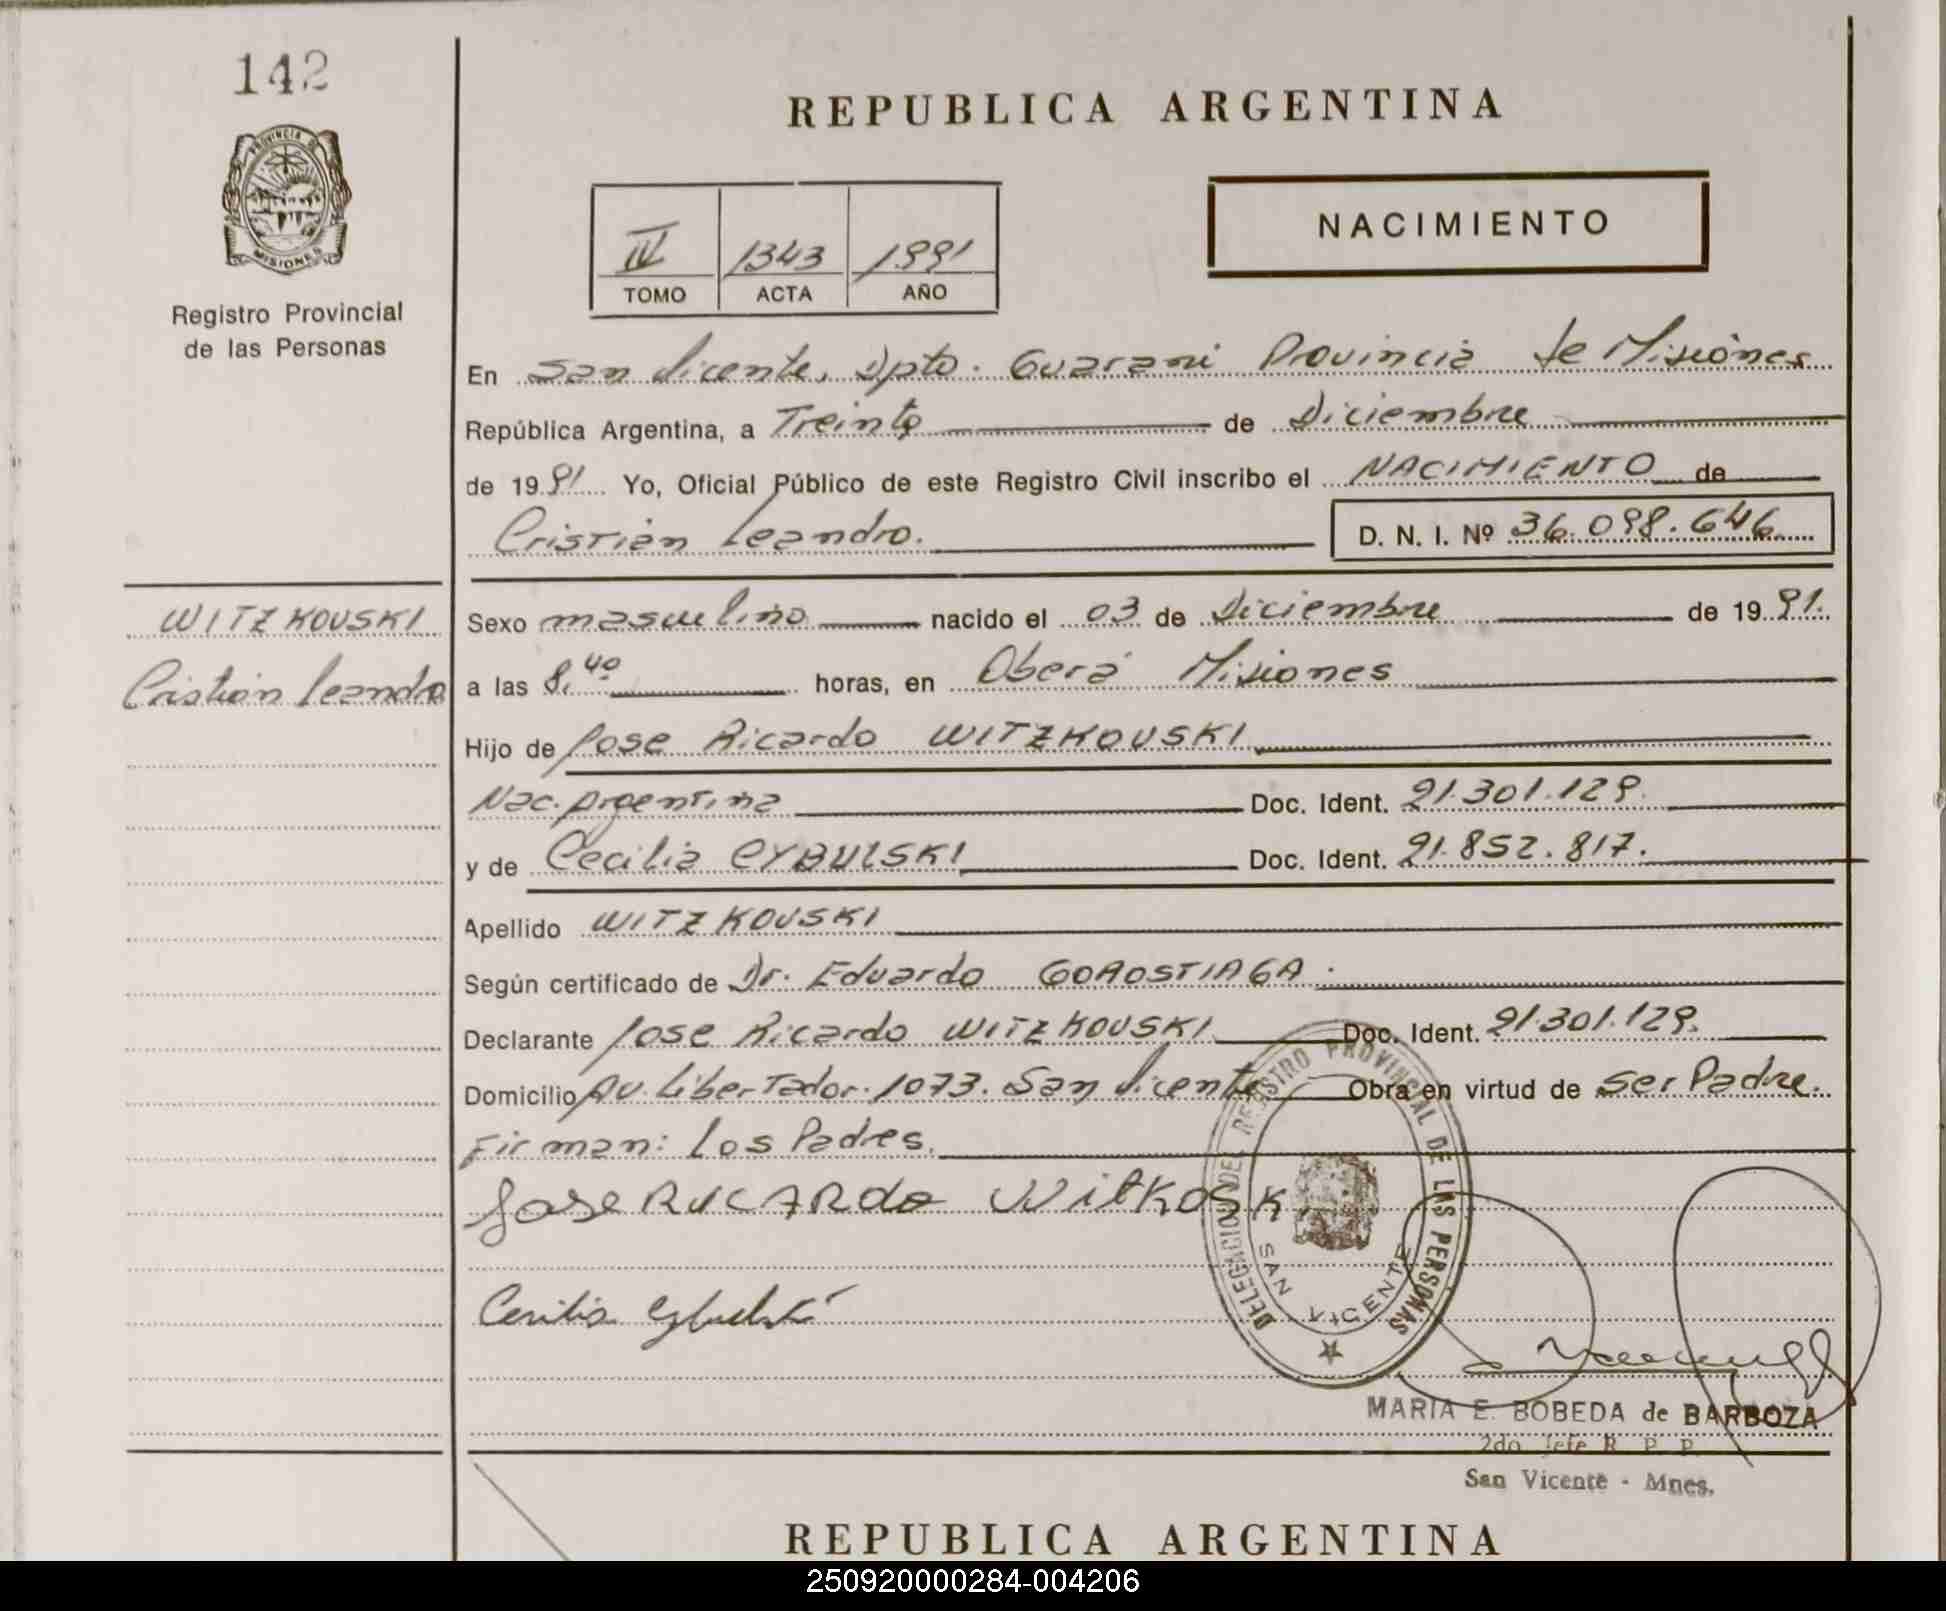 142
REPUBLICA ARGENTINA
PROVINCIA DE
MISIONES
Registro Provincial
de las Personas
IV 1343 1991
TOMO ACTA AÑO
NACIMIENTO
En San Vicente, Dpto. Guarani Provincia de Misiones
República Argentina, a Treinta de Diciembre
de 1991 Yo, Oficial Público de este Registro Civil inscribo el NACIMIENTO de
Cristian Leandro. D. N. I. Nº 36.098.646
WITZKOUSKI
Cristian Leandro
Sexo masculino nacido el 03 de Diciembre de 1991.
a las 8,40 horas, en Oberá Misiones
Hijo de Jose Ricardo WITZKOUSKI
Nac. Argentina Doc. Ident. 21.301.129.
y de Cecilia CYBULSKI Doc. Ident. 21.852.817.
Apellido WITZKOUSKI
Según certificado de Dr. Eduardo GOROSTIAGA.
Declarante Jose Ricardo WITZKOUSKI Doc. Ident. 21.301.129.
Domicilio Av. Libertador. 1073. San Vicente Obra en virtud de ser Padre.
Firman: Los Padres.
Jose RICARdo WitKoski
Cecilia Cybulski
DELEGACION DEL REGISTRO PROVINCIAL DE LAS PERSONAS
SAN VICENTE
MARIA E. BOBEDA de BARBOZA
2do. Jefe R. P. P.
San Vicente - Mnes.
REPUBLICA ARGENTINA
250920000284-004206